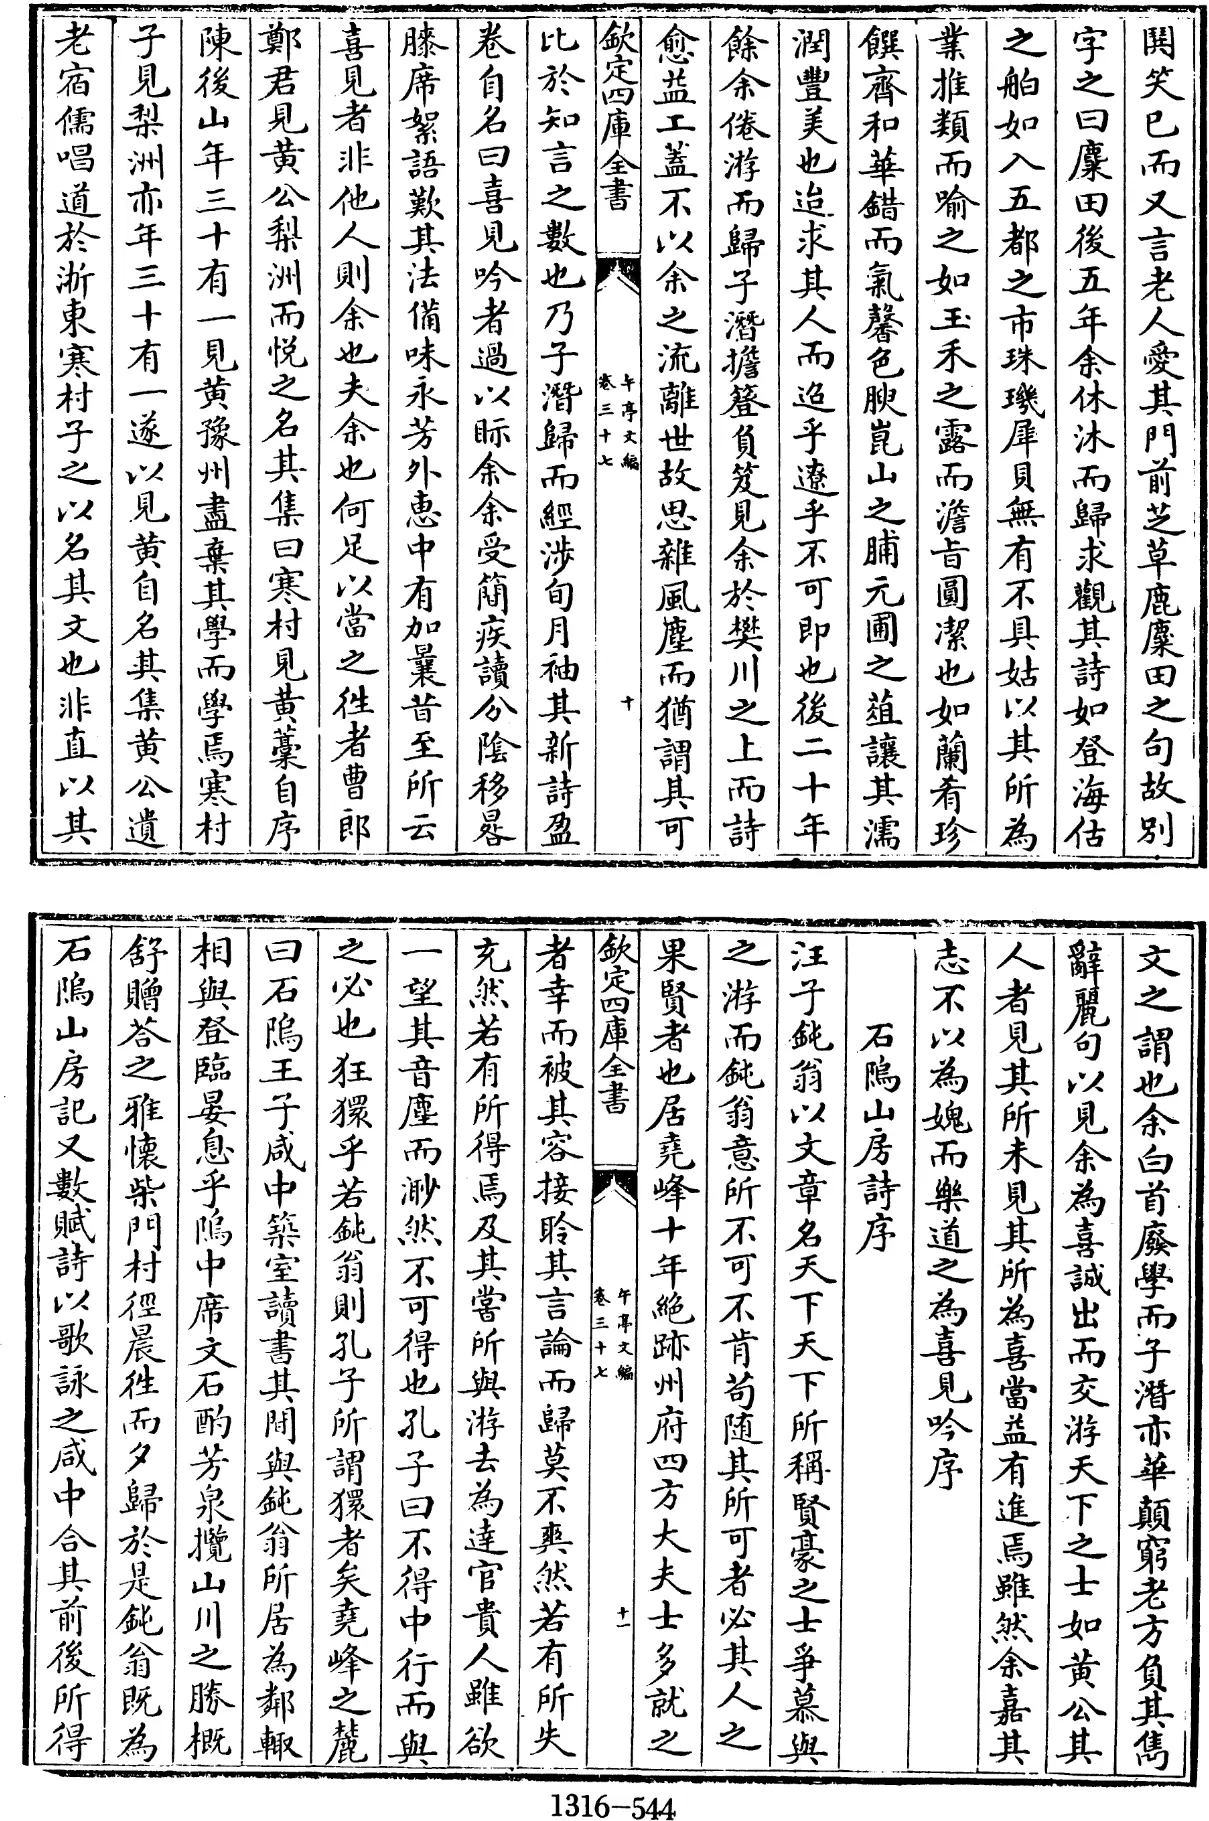 鬨笑已而又言老人愛其門前芝草鹿麋田之句故別
字之曰麋田後五年余休沐而歸求觀其詩如登海估
之舶如入五都之市珠璣犀貝無有不具姑以其所為
業推類而喻之如玉禾之露而澹旨圓潔也如蘭肴珍
饌齊和華錯而氣馨色腴崑山之脯元圃之菹讓其濡
潤豐美也迨求其人而迢乎遼乎不可即也後二十年
餘余倦游而歸子潛擔簦負笈見余於樊川之上而詩
愈益工蓋不以余之流離世故思雜風塵而猶謂其可
欽定四庫全書
午亭文編
卷三十七
十
比於知言之數也乃子潛歸而經涉旬月袖其新詩盈
卷自名曰喜見吟者過以眎余余受簡疾讀分陰移晷
膝席絮語歎其法備味永芳外惠中有加曩昔至所云
喜見者非他人則余也夫余也何足以當之徃者曹郎
鄭君見黃公梨洲而悅之名其集曰寒村見黃藁自序
陳後山年三十有一見黃豫州盡棄其學而學焉寒村
子見梨洲亦年三十有一遂以見黃自名其集黃公遺
老宿儒唱道於浙東寒村子之以名其文也非直以其
文之謂也余白首廢學而子潛亦華顛窮老方負其雋
辭麗句以見余為喜誠出而交游天下之士如黃公其
人者見其所未見其所為喜當益有進焉雖然余嘉其
志不以為媿而樂道之為喜見吟序
石隖山房詩序
汪子鈍翁以文章名天下天下所稱賢豪之士爭慕與
之游而鈍翁意所不可不肯苟随其所可者必其人之
果賢者也居堯峰十年絕跡州府四方大夫士多就之
欽定四庫全書
午亭文編
卷三十七
十一
者幸而被其容接聆其言論而歸莫不爽然若有所失
充然若有所得焉及其嘗所與游去為達官貴人雖欲
一望其音塵而渺然不可得也孔子曰不得中行而與
之必也狂獧乎若鈍翁則孔子所謂獧者矣堯峰之麓
曰石隖王子咸中築室讀書其閒與鈍翁所居為鄰輙
相與登臨晏息乎隖中席文石酌芳泉攬山川之勝概
舒贈荅之雅懷柴門村徑晨徃而夕歸於是鈍翁既為
石隖山房記又數賦詩以歌詠之咸中合其前後所得
1316-544